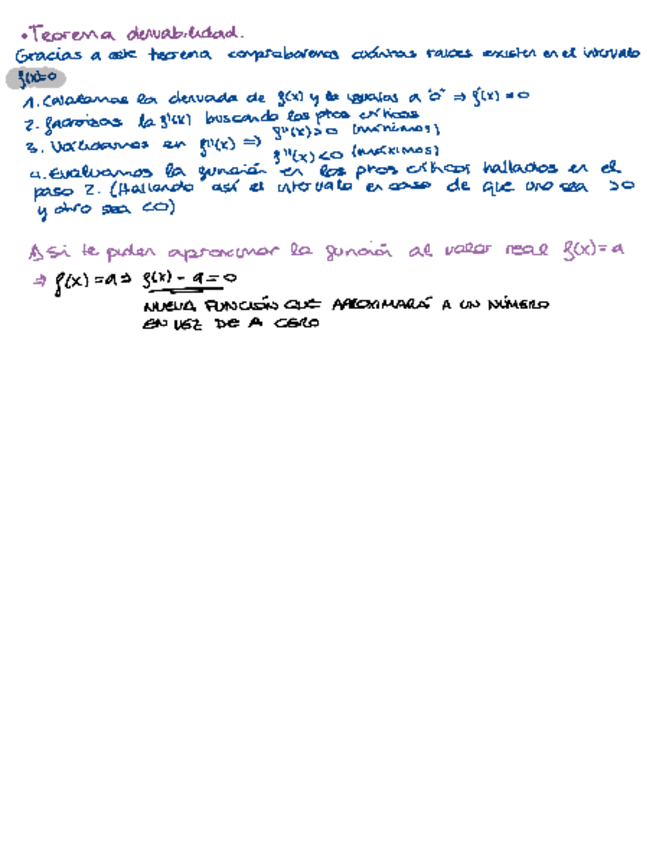 • Teorema derivabilidad.
Gracias a este teorema comprobaremos cuántas raíces existen en el intervalo
f(x)=0
1. Calculamos la derivada de f(x) y la igualas a "0" ⇒ f'(x) = 0
2. factorizas la f'(x) buscando los ptos críticos
3. Validamos en f''(x) ⇒ f''(x)>0 (mínimos)
f''(x)<0 (máximos)
4. Evaluamos la función en los ptos críticos hallados en el
paso 2. (Hallando así el intervalo en caso de que uno sea >0
y otro sea <0)
si te piden aproximar la función al valor real f(x)=a
⇒ f(x)=a ⇒ f(x) - a = 0
NUEVA FUNCIÓN QUE APROXIMARÁ A UN NÚMERO
EN VEZ DE A CERO